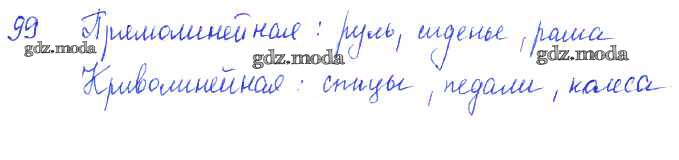 99 Прямолинейная: руль, сиденье, рама
gdz.moda gdz.moda gdz.moda
Криволинейная: спицы, педали, колеса